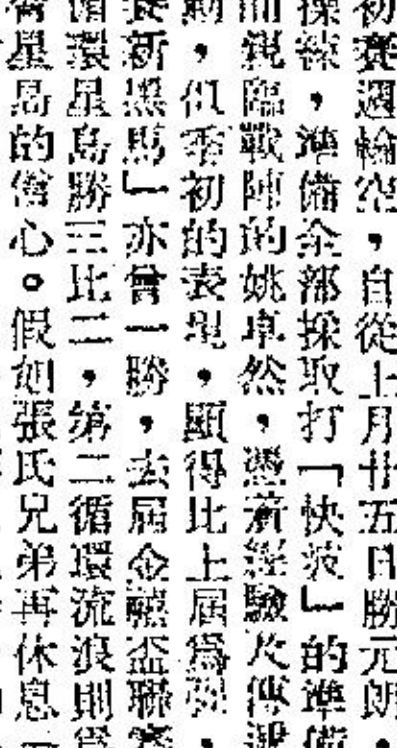 初賽週輪空，自從上月廿五日勝元朗，
操練，準備全部採取打「快波」的準備
親臨戰陣的姚卓然，憑着經驗及傳
動，但季初的表現，顯得比上屆爲強，
新黑馬」亦曾一勝，去屆金禧盃聯賽
循環星島勝三比二，第二循環流浪則爲
星島的信心。假如張氏兄弟再休息